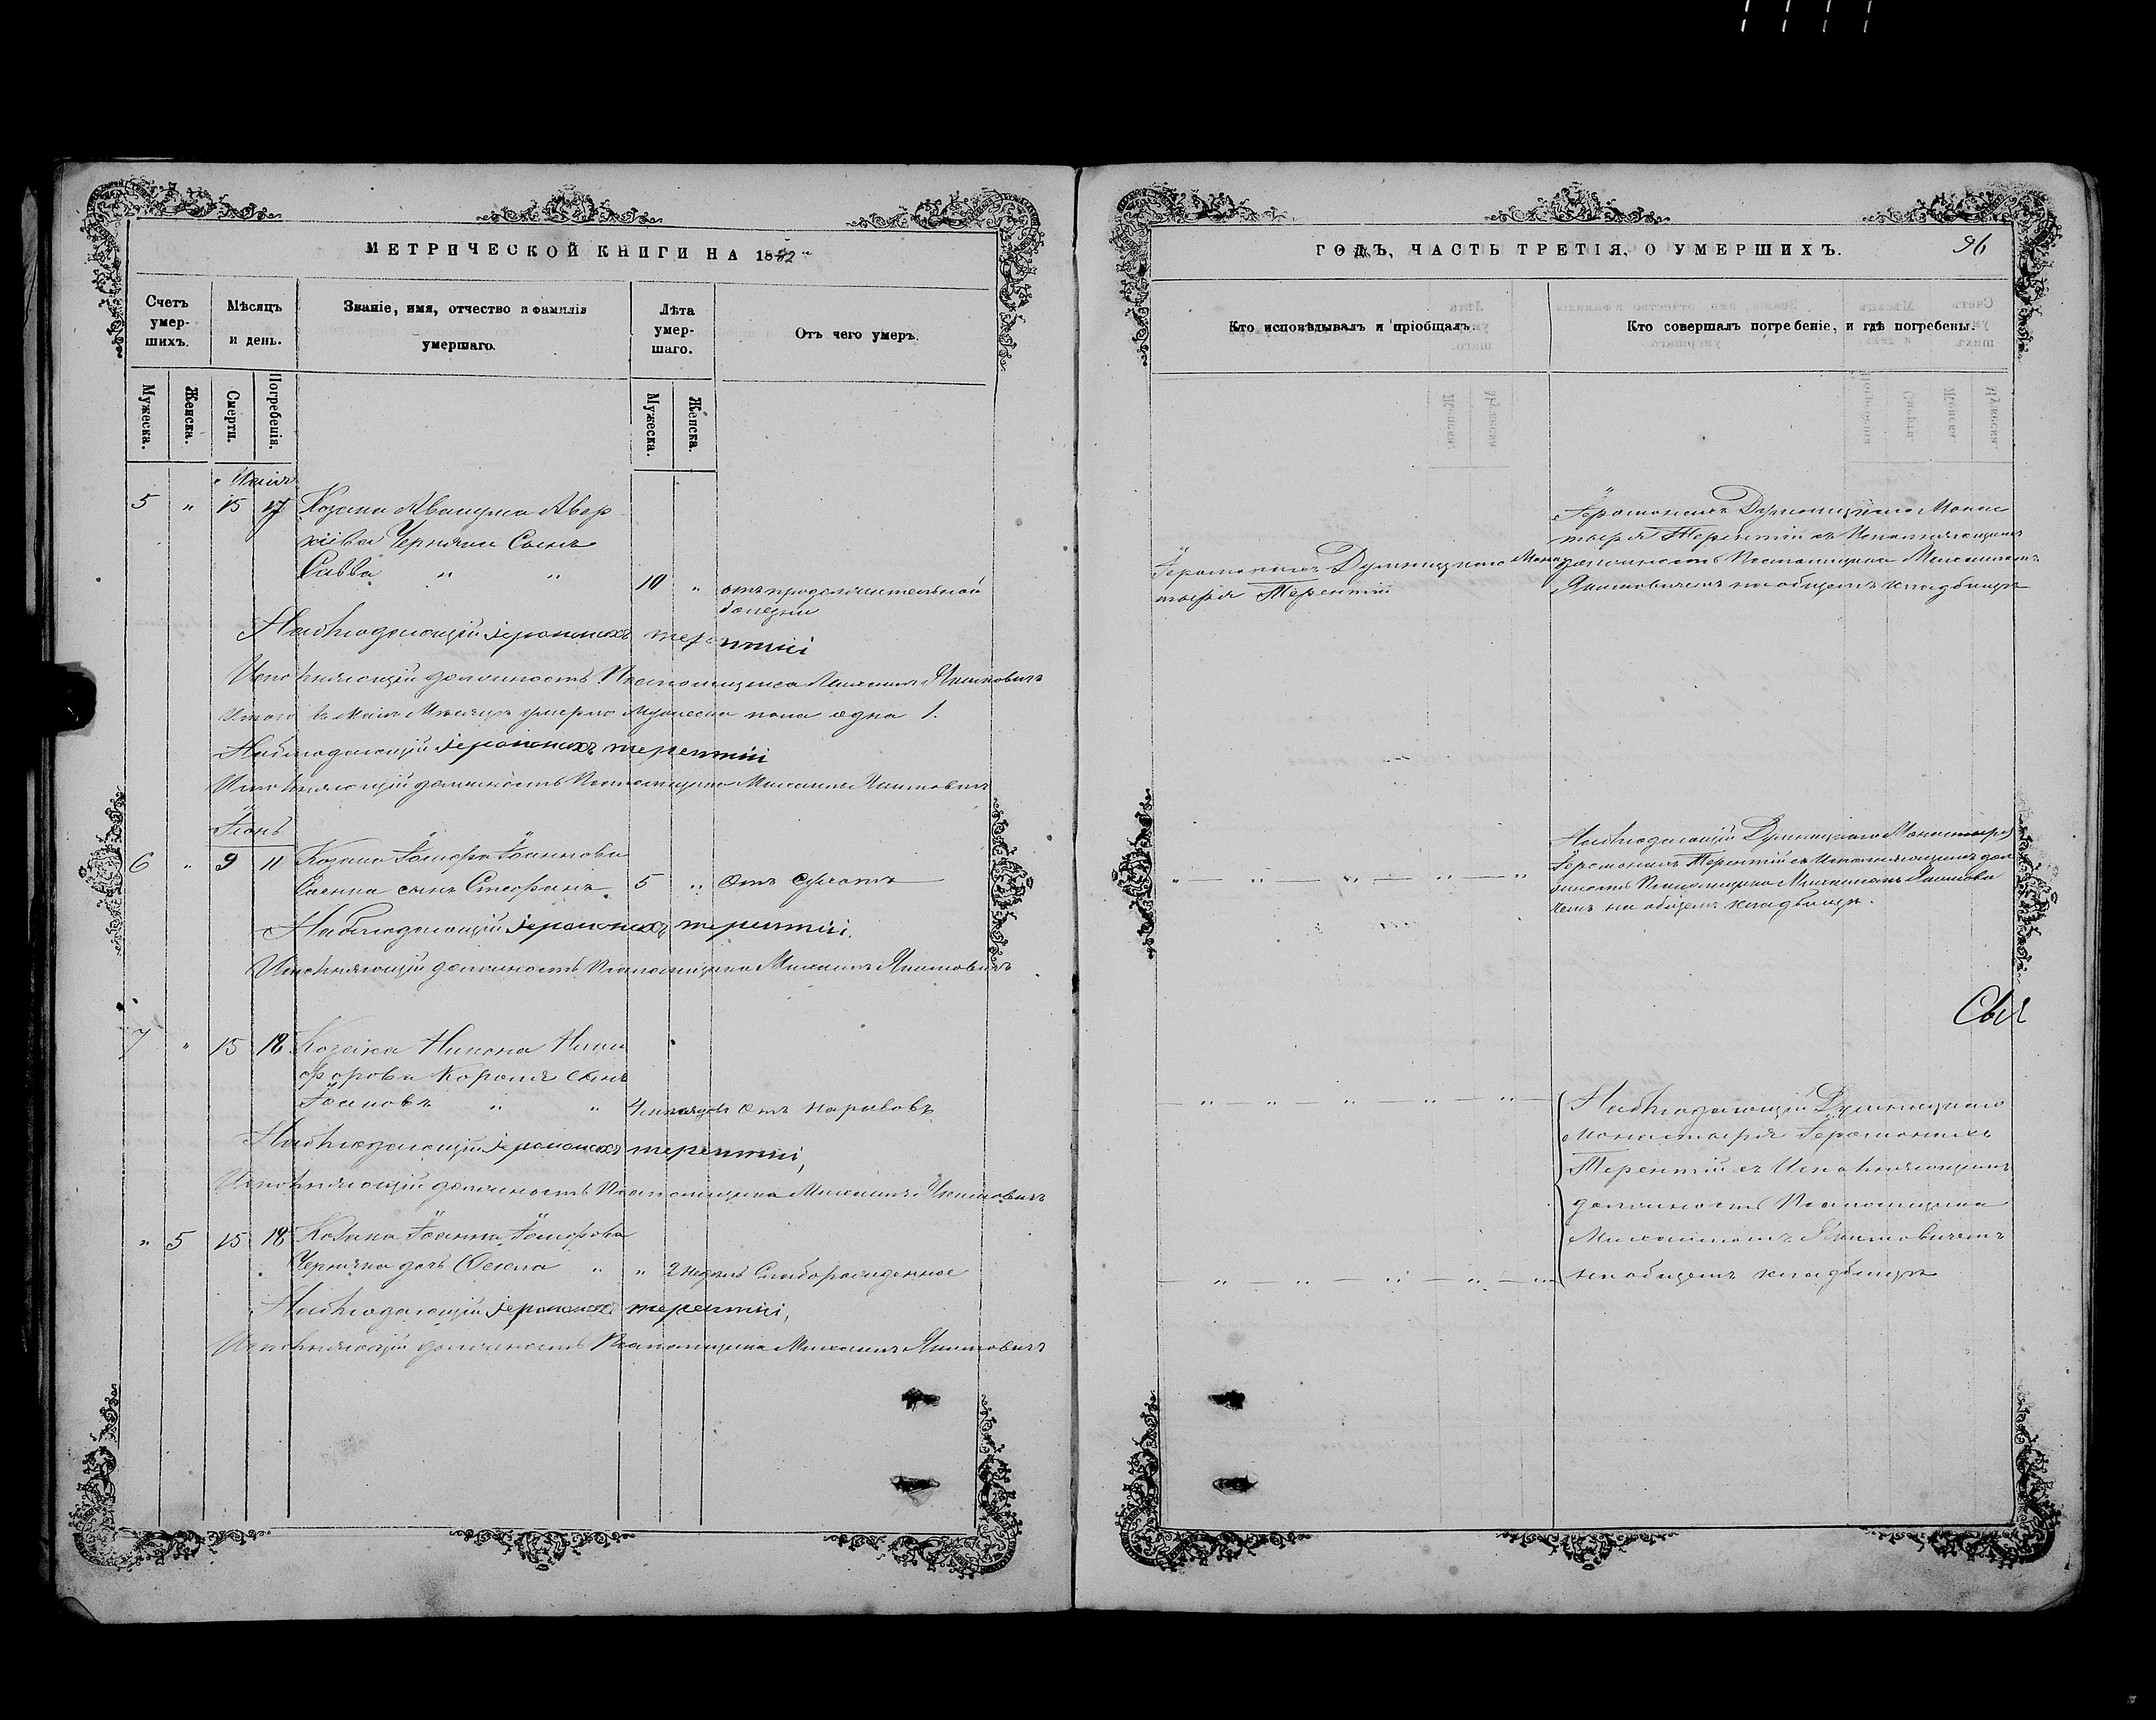 МЕТРИЧЕСКОЙ КНИГИ НА 1882
Счетъ умер-шихъ.
Мѣсяцъ и день.
Званіе, имя, отчество и фамилія умершаго.
Лѣта умер-шаго.
Отъ чего умеръ.
Мужеска.
Женска.
Смерти.
Погребенія.
Мужеска.
Женска.
Маія
5 " 15 17 Козака Авер
кіева Черняка Сынъ
Савва " "
10 " отъ продолжительной
болезни
Наблюдающій іеромонахъ терентіи
Исполняющій должность Псаломщика Михаилъ Якимовичъ
Итого въ Маіи Месяце умерло Мужеска пола одна 1.
Наблюдающій іеромонахъ терентіи
Исполняющій должность Псаломщика Михаилъ Якимовичъ
Іюнь
6 " 9 11 Козака Іосифа Іоаннова
сынъ Стефанъ 5 " Отъ сухотъ
Наблюдающій іеромонахъ терентіи.
Исполняющій должность Псаломщика Михаилъ Якимовичъ
7 " 15 18 Козака Никона Ники
форова Короля сынъ
Іоановъ " " 4 месяцов Отъ нарывовъ
Наблюдающій іеромонахъ терентіи,
Исполняющій должность Псаломщика Михаилъ Якимовичъ
" 5 15 18 Козака Іоанна Іосифова
Черняка дочь Фекла " " 2 недель Слаборожденное
Наблюдающій іеромонахъ терентіи,
Исполняющій должность Псаломщика Михаилъ Якимовичъ
ГОДЪ, ЧАСТЬ ТРЕТІЯ, О УМЕРШИХЪ.
96
Кто исповѣдывалъ и пріобщалъ.
Кто совершалъ погребеніе, и гдѣ погребены.
Іеромонахъ Думницкаго Мона
тыря Терентій
Іеромонахъ Думницкаго Монас
тыря Терентій съ Исполняющимъ
должность Псаломщика Михаиломъ
Якимовичемъ на общемъ кладбище
" — " — " — " — "
Наблюдающій Думницкаго Монастыря
Іеромонахъ Терентій съ Исполняющимъ дол
жность Псаломщика Михаиломъ Якимови
чемъ на общемъ кладбище.
— " — " — " — " —
Наблюдающій Думницкаго
Монастыря Іеромонахъ
Терентій съ Исполняющимъ
должность Псаломщика
Михаиломъ Якимовичемъ
на общемъ кладбище
— " — " — " — " —